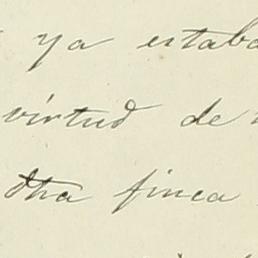 ya estaba
virtud de
dha finca